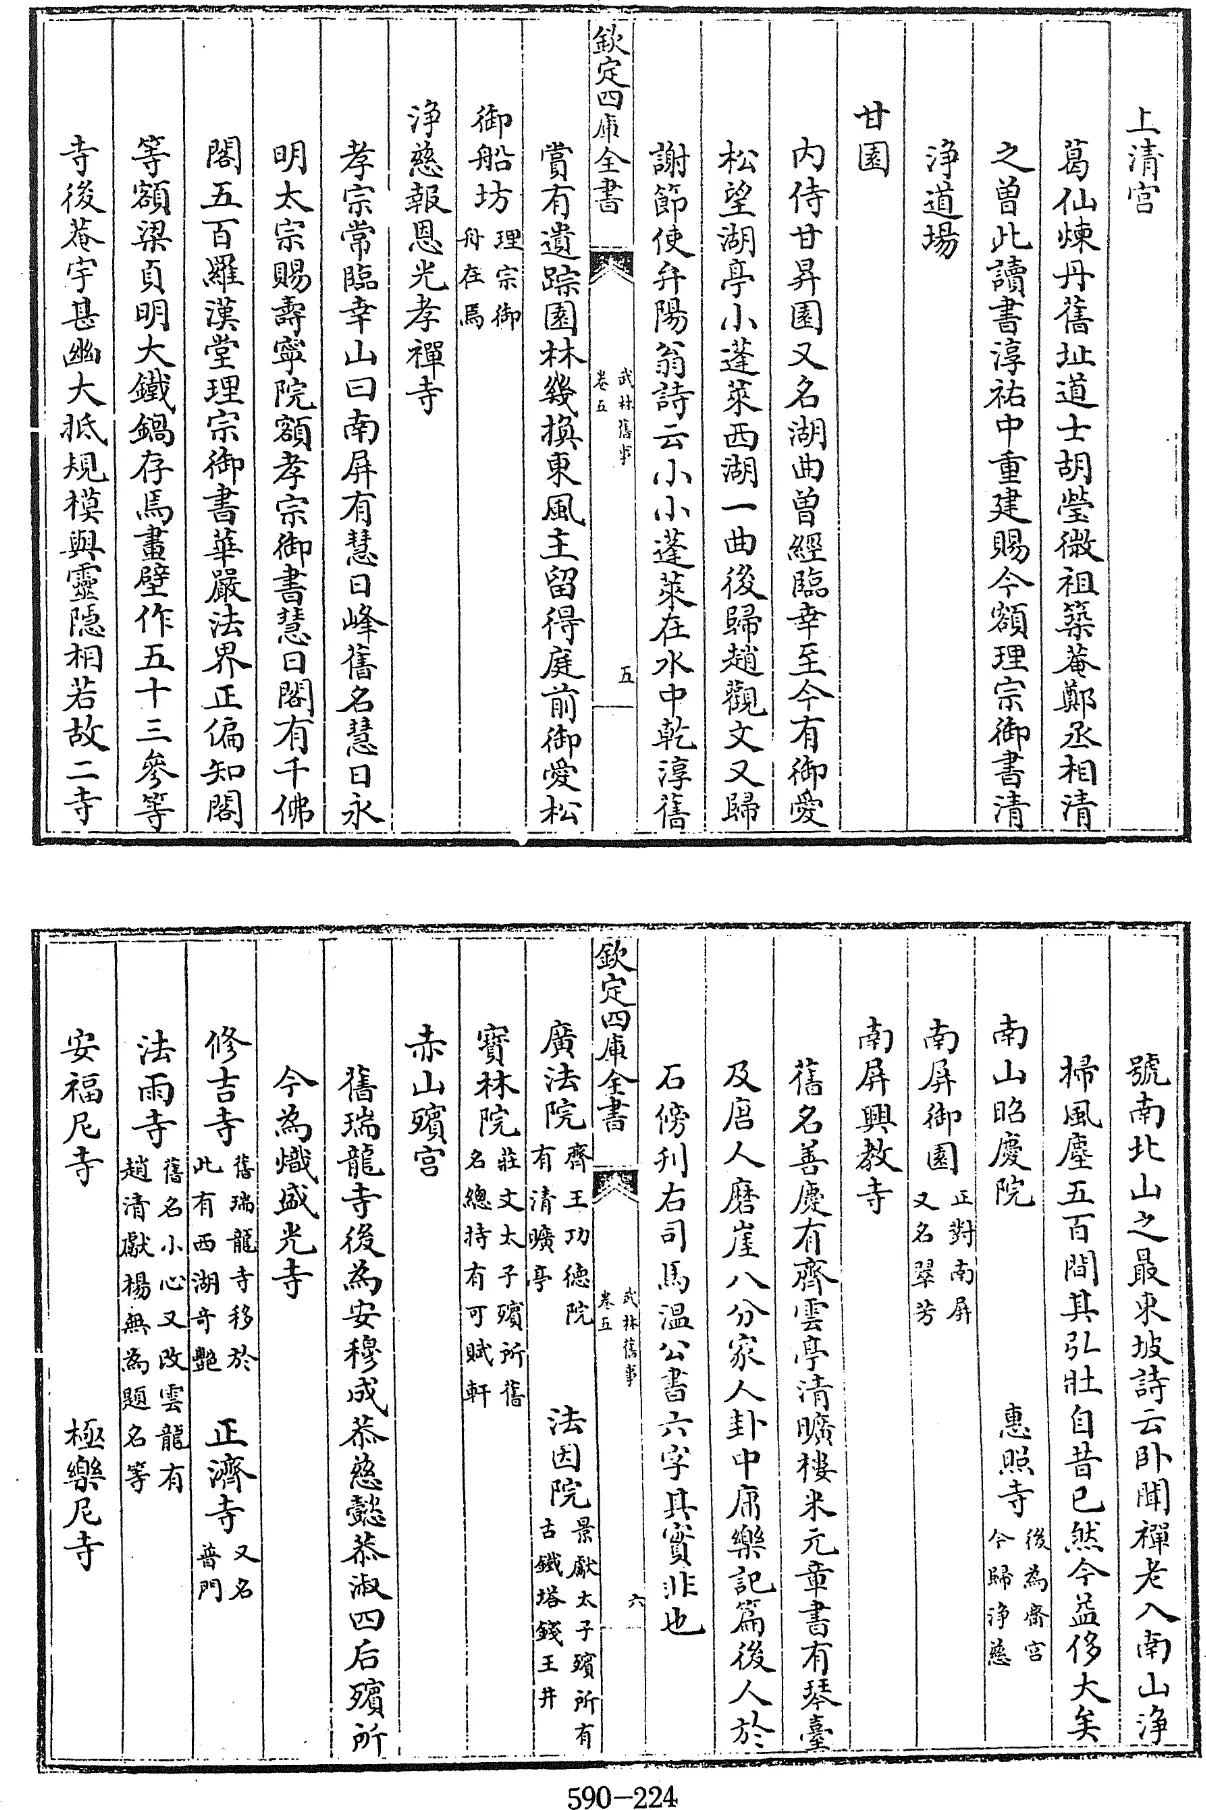 上清宫
葛仙煉丹舊址道士胡瑩微祖築菴鄭丞相清
之曽此讀書淳祐中重建賜今額理宗御書清
浄道場
甘園
内侍甘昇園又名湖曲曽經臨幸至今有御愛
松望湖亭小蓬萊西湖一曲後歸趙觀文又歸
謝節使弁陽翁詩云小小蓬萊在水中乾淳舊
欽定四庫全書
武林舊事
卷五
五
賞有遺踪園林幾換東風主留得庭前御愛松
御船坊理宗御
舟在焉
浄慈報恩光孝禪寺
孝宗常臨幸山曰南屏有慧日峰舊名慧日永
明太宗賜壽寧院額孝宗御書慧日閣有千佛
閣五百羅漢堂理宗御書華嚴法界正偏知閣
等額梁貞明大鐵鍋存焉畫壁作五十三參等
寺後菴宇甚幽大抵規模與靈隠相若故二寺
號南北山之最東坡詩云卧聞禪老入南山浄
掃風塵五百間其弘壯自昔已然今益侈大矣
南山昭慶院
惠照寺後為齋宫
今歸浄慈
南屏御園正對南屏
又名翠芳
南屏興教寺
舊名善慶有齊雲亭清曠樓米元章書有琴臺
及唐人磨崖八分家人卦中庸樂記篇後人於
石傍刋右司馬温公書六字其實非也
欽定四庫全書
武林舊事
卷五
六
廣法院齊王功德院
有清曠亭
法因院景獻太子殯所有
古鐵塔錢王井
寳林院莊文太子殯所舊
名總持有可賦軒
赤山殯宫
舊瑞龍寺後為安穆成恭慈懿恭淑四后殯所
今為熾盛光寺
修吉寺舊瑞龍寺移於
此有西湖竒艶
正濟寺又名
普門
法雨寺舊名小心又改雲龍有
趙清獻楊無為題名等
安福尼寺
極樂尼寺
590-224